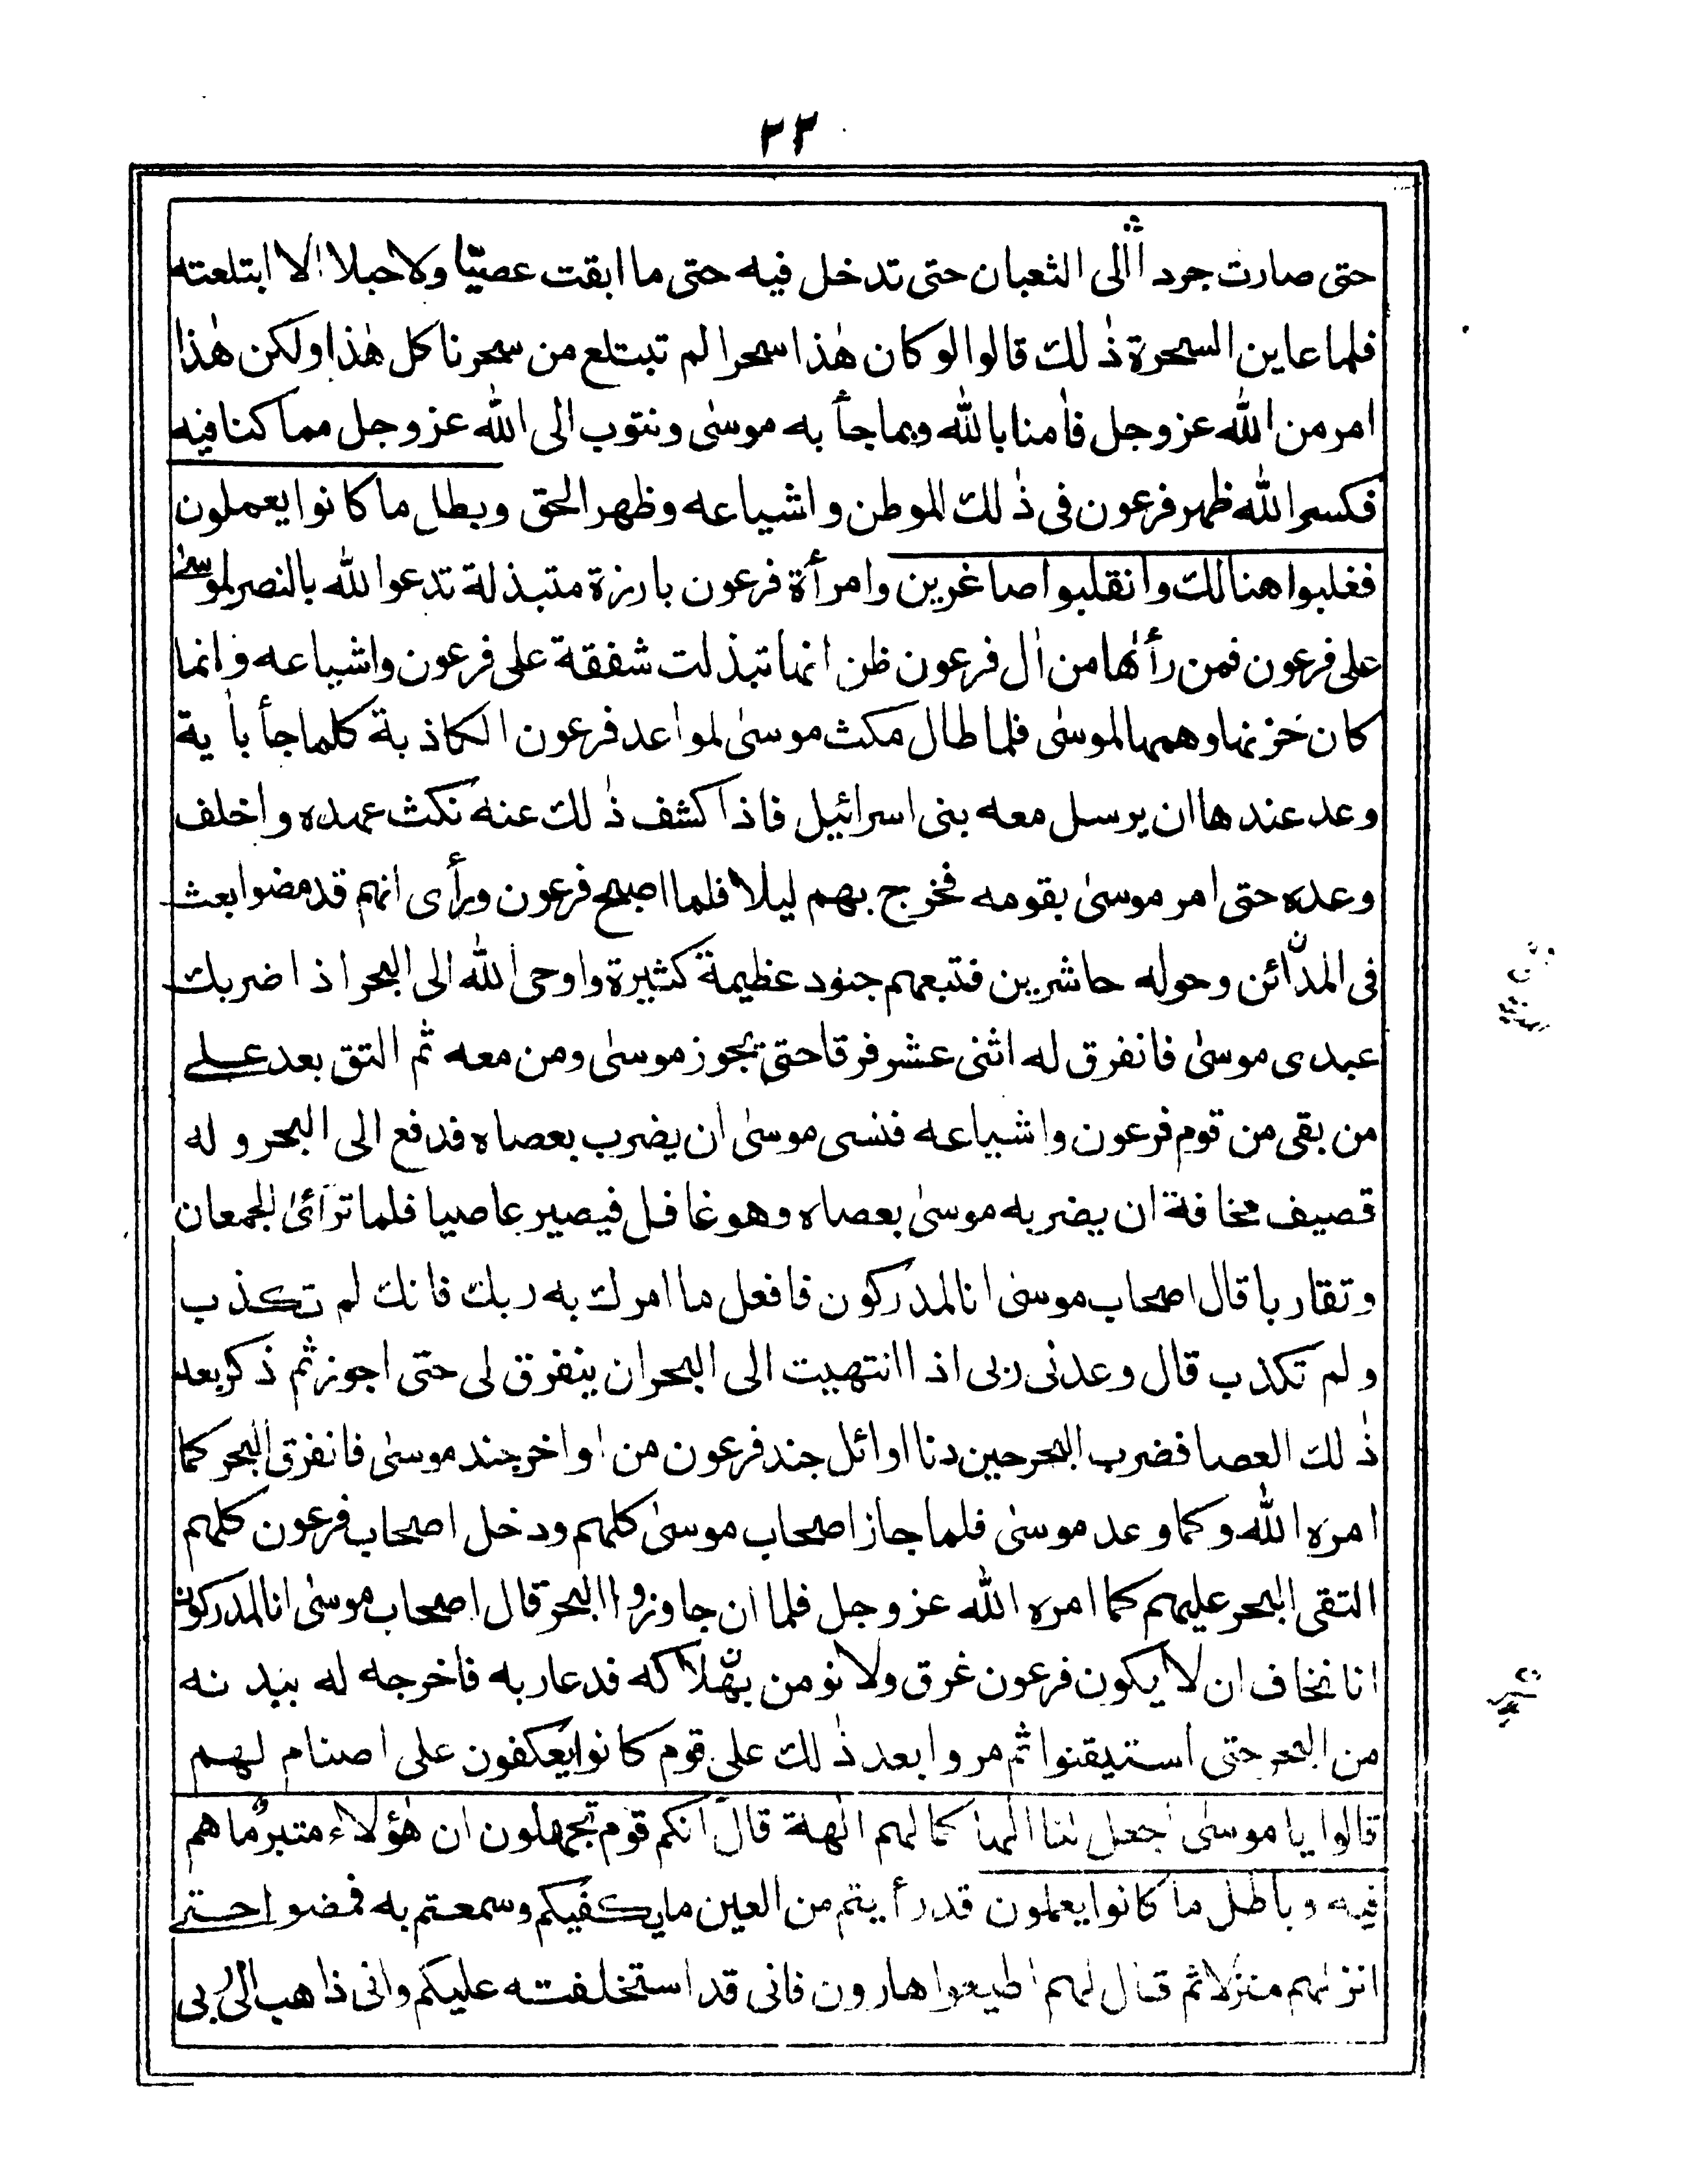 ٢٣
حتى صارت جرداً الى الثعبان حتى تدخل فيه حتى ما ابقت عصيّا ولا حبلا الا ابتلعته
فلما عاين السحرة ذٰلك قالوا لو كان هٰذا سحرا لم تبتلع من سحرنا كل هٰذا ولكن هٰذا
امر من الله عز وجل فاٰمنا بالله وبما جأ به موسىٰ ونتوب الى الله عز وجل مما كنا فيه
فكسر الله ظهر فرعون فى ذٰلك الموطن واشياعه وظهر الحق وبطل ما كانوا يعملون
فغلبوا هنالك وانقلبوا صاغرين وامرأة فرعون بارزة متبذلة تدعوا لله بالنصر لموسىٰ
على فرعون فمن رأٰها من اٰل فرعون ظن انها تبذلت شفقة على فرعون واشياعه وانما
كان حزنها وهمها لموسٰى فلما طال مكث موسىٰ لمواعد فرعون الكاذبة كلما جأ باٰية
وعد عندها ان يرسل معه بنى اسرائيل فاذا كشف ذٰلك عنه نكث عهده واخلف
وعده حتى امر موسىٰ بقومه فخرج بهم ليلا فلما اصبح فرعون ورأى انهم قد مضوا بعث
فى المدآئن وحوله حاشرين فتبعهم جنود عظيمة كثيرة واوحى الله الى البحر اذا ضربك
عبدى موسىٰ فانفرق له اثنى عشر فرقا حتى يجوز موسىٰ ومن معه ثم التق بعد على
من بقى من قوم فرعون واشياعه فنسى موسىٰ ان يضرب بعصاه فدفع الى البحر وله
قصيف مخافة ان يضربه موسىٰ بعصاه وهو غافل فيصير عاصيا فلما تراٰئ الجمعان
وتقاربا قال اصحاب موسىٰ انا لمدركون فافعل ما امرك به ربك فانك لم تكذب
ولم تكذب قال وعدنى ربى اذا انتهيت الى البحر ان ينفرق لى حتى اجوز ثم ذكر بعد
ذٰلك العصا فضرب البحر حين دنا اوائل جند فرعون من اواخر جند موسىٰ فانفرق البحر كما
امره الله وكما وعد موسىٰ فلما جاز اصحاب موسىٰ كلهم ودخل اصحاب فرعون كلهم
التقى البحر عليهم كما امره الله عز وجل فلما ان جاوزوا البحر قال اصحاب موسىٰ انا لمدركون
انا نخاف ان لا يكون فرعون غرق ولا نومن بهلاكه فدعا ربه فاخرجه له ببدنه
من البحر حتى استيقنوا ثم مروا بعد ذٰلك على قوم كانوا يعكفون على اصنام لهم
قالوا يا موسىٰ اجعل لنا الٰها كما لهم اٰلهة قال انكم قوم تجهلون ان هٰؤلاء متبر ما هم
فيه وباطل ما كانوا يعملون قد رأيتم من العين ما يكفيكم وسمعتم به فمضوا حتى
انزلهم منزلا ثم قال لهم اطيعوا هارون فانى قد استخلفته عليكم وانى ذاهب الى ربى